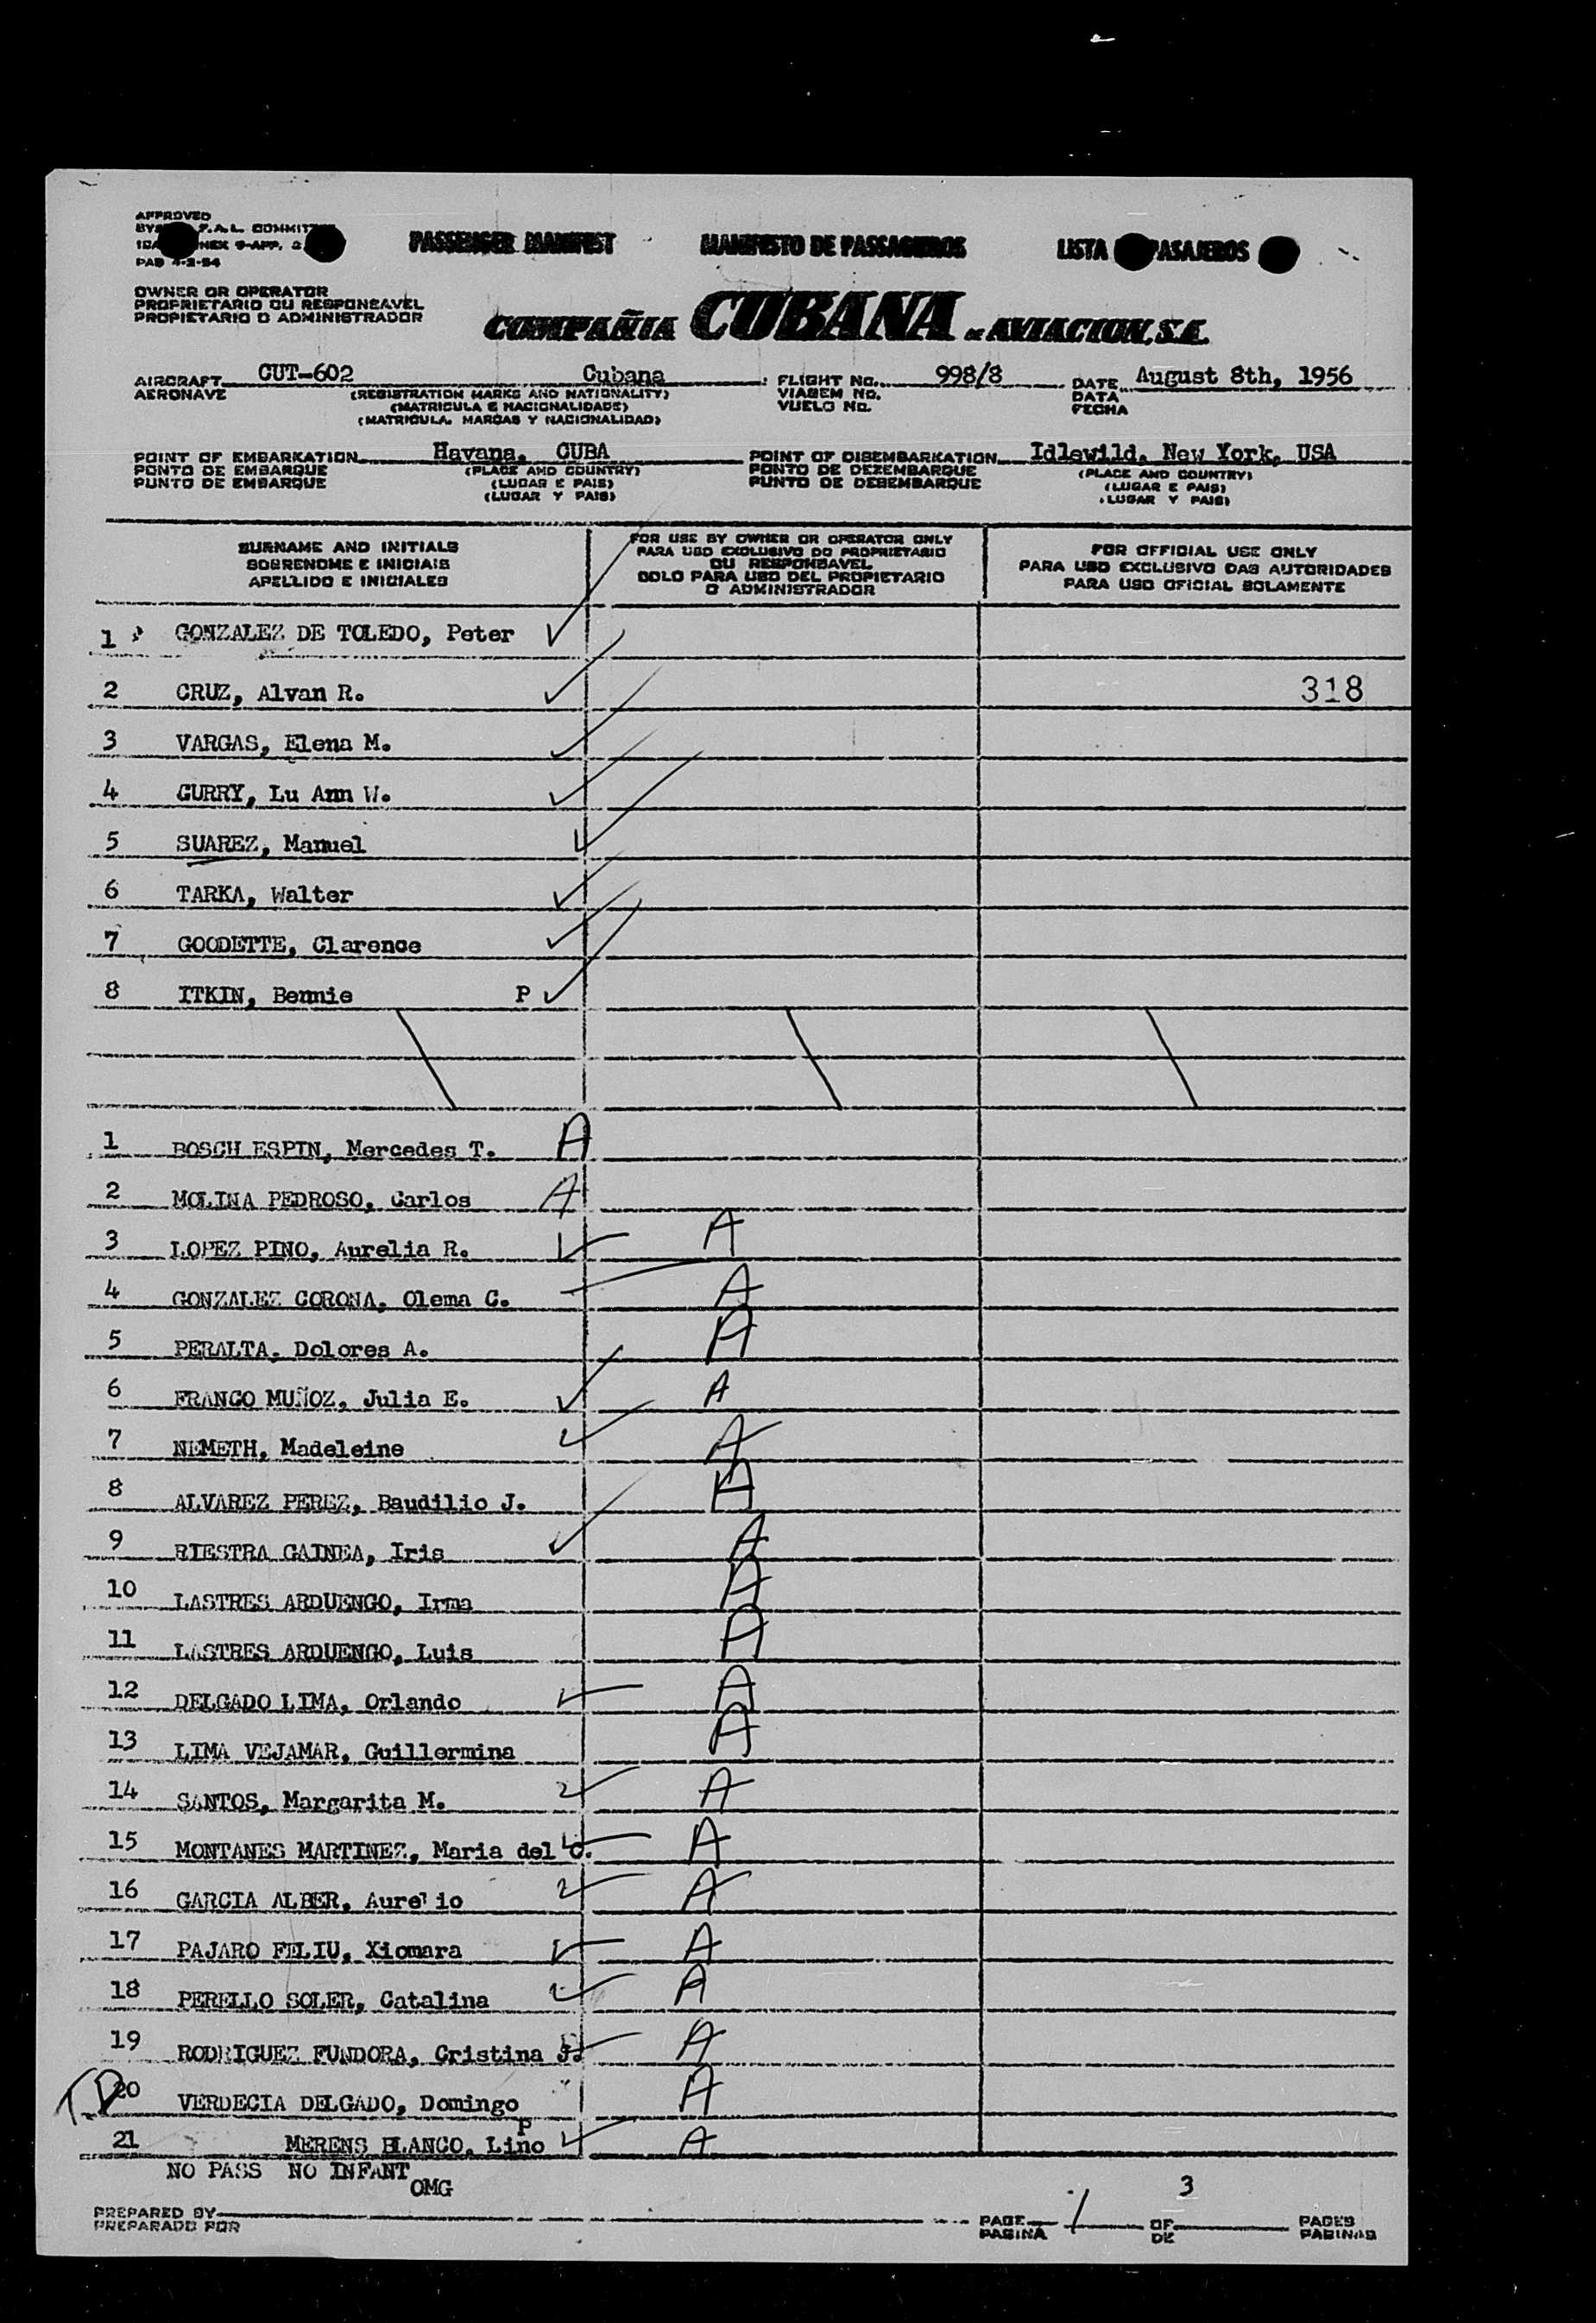 APPROVED
BY F.A.L. COMMITTEE
ICA ANNEX 9-APP. 2
PAB 4-2-54
PASSENGER MANIFEST MANIFESTO DE PASSAGEIROS LISTA PASAJEROS
OWNER OR OPERATOR
PROPRIETARIO OU RESPONSAVEL
PROPIETARIO O ADMINISTRADOR
COMPAÑIA CUBANA DE AVIACION, S.A.
AIRCRAFT CUT-602 Cubana FLIGHT No. 998/8 DATE August 8th, 1956
AERONAVE (REGISTRATION MARKS AND NATIONALITY) VIAGEM No. DATA
(MATRICULA E NACIONALIDADE) VUELO No. FECHA
(MATRICULA, MARCAS Y NACIONALIDAD)
POINT OF EMBARKATION Havana, CUBA POINT OF DISEMBARKATION Idlewild, New York, USA
PONTO DE EMBARQUE (PLACE AND COUNTRY) PONTO DE DEZEMBARQUE (PLACE AND COUNTRY)
PUNTO DE EMBARQUE (LUGAR E PAIS) PUNTO DE DESEMBARQUE (LUGAR E PAIS)
(LUGAR Y PAIS) (LUGAR Y PAIS)
SURNAME AND INITIALS
SOBRENOME E INICIAIS
APELLIDO E INICIALES
FOR USE BY OWNER OR OPERATOR ONLY
PARA USO EXCLUSIVO DO PROPRIETARIO
OU RESPONSAVEL
SOLO PARA USO DEL PROPIETARIO
O ADMINISTRADOR
FOR OFFICIAL USE ONLY
PARA USO EXCLUSIVO DAS AUTORIDADES
PARA USO OFICIAL SOLAMENTE
1 GONZALEZ DE TOLEDO, Peter
2 CRUZ, Alvan R. 318
3 VARGAS, Elena M.
4 GURRY, Lu Ann W.
5 SUAREZ, Manuel
6 TARKA, Walter
7 GOODETTE, Clarence
8 ITKIN, Bennie P
1 BOSCH ESPIN, Mercedes T. A
2 MOLINA PEDROSO, Carlos A
3 LOPEZ PINO, Aurelia R. A
4 GONZALEZ CORONA, Olema C. A
5 PERALTA, Dolores A. A
6 FRANCO MUÑOZ, Julia E. A
7 NEMETH, Madeleine A
8 ALVAREZ PEREZ, Baudilio J. A
9 RIESTRA GAINEA, Iris A
10 LASTRES ARDUENGO, Irma A
11 LASTRES ARDUENGO, Luis A
12 DELGADO LIMA, Orlando A
13 LIMA VEJAMAR, Guillermina A
14 SANTOS, Margarita M. A
15 MONTANES MARTINEZ, Maria del C. A
16 GARCIA ALBER, Aurelio A
17 PAJARO FELIU, Xiomara A
18 PERELLO SOLER, Catalina A
19 RODRIGUEZ FUNDORA, Cristina J. A
TP 20 VERDECIA DELGADO, Domingo A
P
21 MERENS BLANCO, Lino A
NO PASS NO INFANT
OMG
PREPARED BY PAGE 1 OF 3 PAGES
PREPARADO POR PAGINA DE PAGINAS